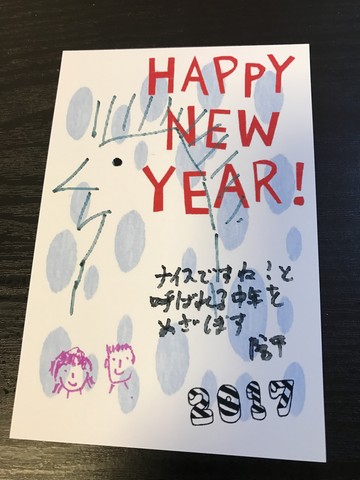 HAPPY
NEW
YEAR!
ナイスですね!と
呼ばれる中年を
めざします
2017